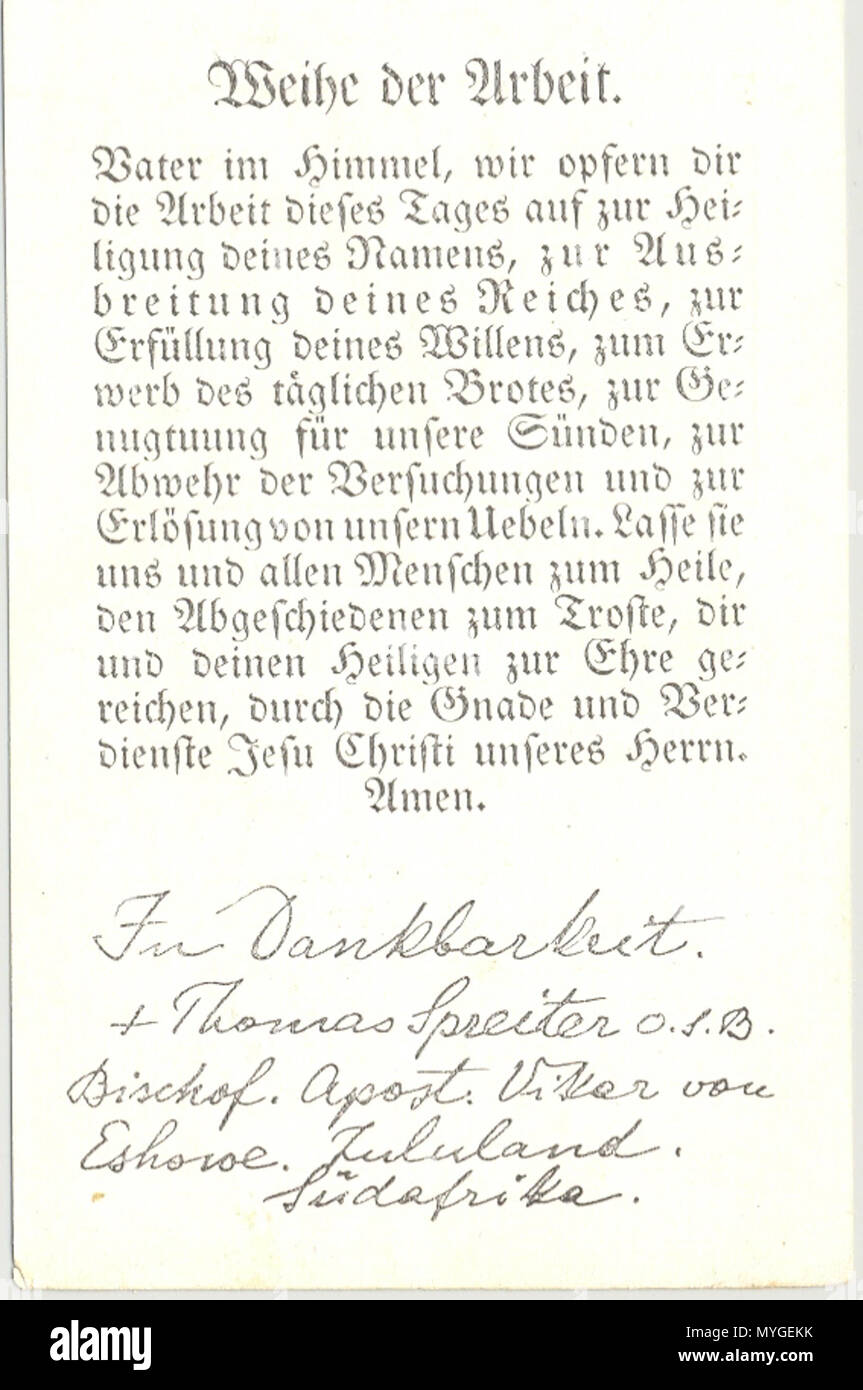 Weihe der Arbeit.
Vater im Himmel, wir opfern dir
die Arbeit dieses Tages auf zur Hei=
ligung deines Namens, zur Aus=
breitung deines Reiches, zur
Erfüllung deines Willens, zum Er=
werb des täglichen Brotes, zur Ge=
nugtuung für unsere Sünden, zur
Abwehr der Versuchungen und zur
Erlösung von unsern Uebeln. Lasse sie
uns und allen Menschen zum Heile,
den Abgeschiedenen zum Troste, dir
und deinen Heiligen zur Ehre ge=
reichen, durch die Gnade und Ver=
dienste Jesu Christi unseres Herrn.
Amen.
In Dankbarkeit.
+ Thomas Spreiter O.S.B.
Bischof. Apost. Vikar von
Eshowe. Zululand.
Südafrika.
a
alamy
Image ID: MYGEKK
www.alamy.com